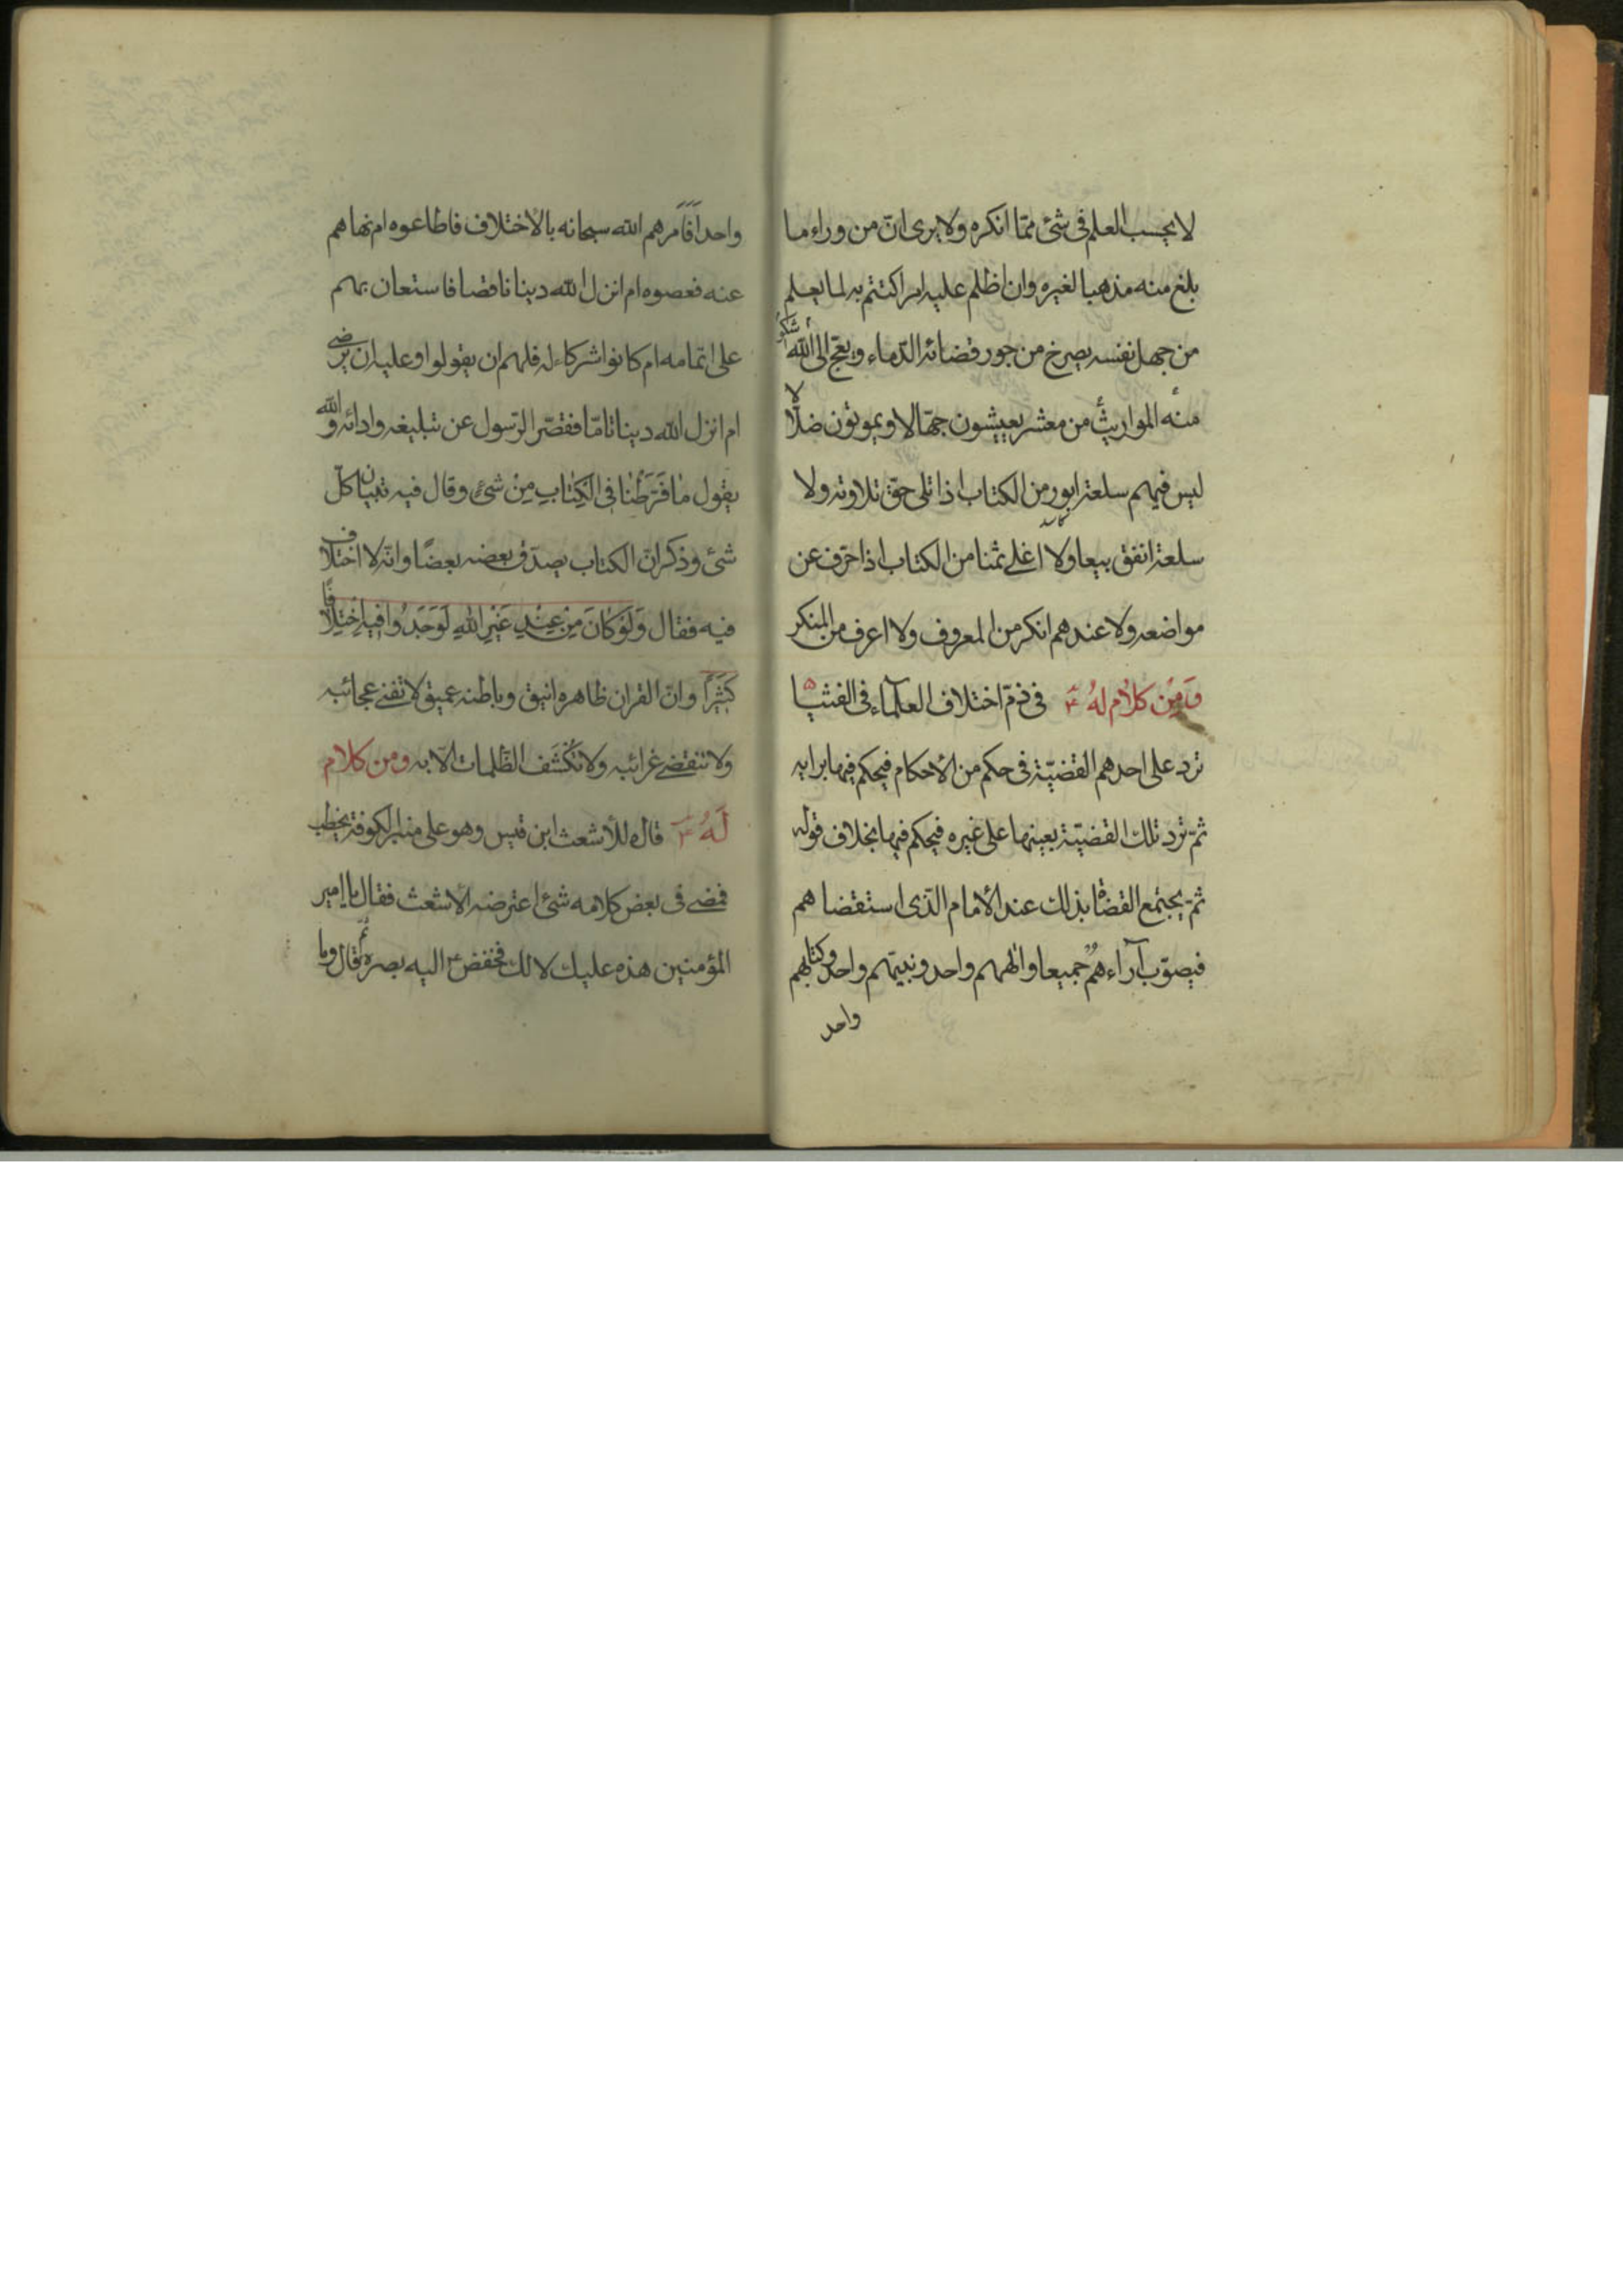 لا يحسب العلم فى شئ ممّا انكره ولا يرى انّ من وراء ما
بلغ منه مذهبا لغيره وان اظلم عليه امر اكتتم به لما يعلم
من جهل نفسه يصرخ من جور قضائه الدّماء و يعجّ الى الله اشكو
منه المواريث من معشر يعيشون جهّالا و يموتون ضلّالا
ليس فيهم سلعة ابور من الكتاب اذا تلى حقّ تلاوته ولا
سلعة انفق بيعا ولا اغلى ثمنا من الكتاب اذا حرّف عن
مواضعه ولا عندهم انكر من المعروف ولا اعرف من المنكر
وَ مِن كلام لهُ ۴ فى ذمّ اختلاف العلمآء فى الفتيا
ترد على احدهم القضيّة فى حكم من الأحكام فيحكم فيها برايه
ثمّ ترد تلك القضيّة بعينها على غيره فيحكم فيها بخلاف قوله
ثمّ يجتمع القضاة بذلك عند الأمام الّذى استقضاهم
فيصوّب آراءهم جميعا و الٰههم واحد و نبيّهم واحد و كتابهم
واحد
واحد اَفَاَمرهم الله سبحانه بالاختلاف فاطاعوه ام نهاهم
عنه فعصوه ام انزل الله دينا ناقصا فاستعان بهم
على اتمامه ام كانوا شركاء له فلهم ان يقولوا و عليه ان يرضى
ام انزل الله دينا تامّا فقصّر الرّسول عن تبليغه وادائه و الله
يقول مٰا فَرَّطْنٰا فِى الْكِتٰابِ مِنْ شَئٍ و قال فيه تبيان كلّ
شئ و ذكر انّ الكتاب يصدّق بعضه بعضًا و انّه لا اختلاف
فيه فقال وَلَوْ كٰانَ مِنْ عِنْدِ غَيْرِ اللهِ لَوَجَدُوا فيهِ اخْتِلٰافًا
كَثيرًا و انّ القران ظاهره انيق و باطنه عميق لا تفنى عجائبه
ولا تنقضى غرائبه ولا تُكْشَف الظّلمات الّا به و من كلام
لَهُ ۴ قاله للأشعث ابن قيس و هو على منبر الكوفة يخطب
فمضى فى بعض كلامه شئ اعترضه الأشعث فقال يا امير
المؤمنين هذه عليك لا لك فخفض ۴ اليه بصره ثمّ قال و ما